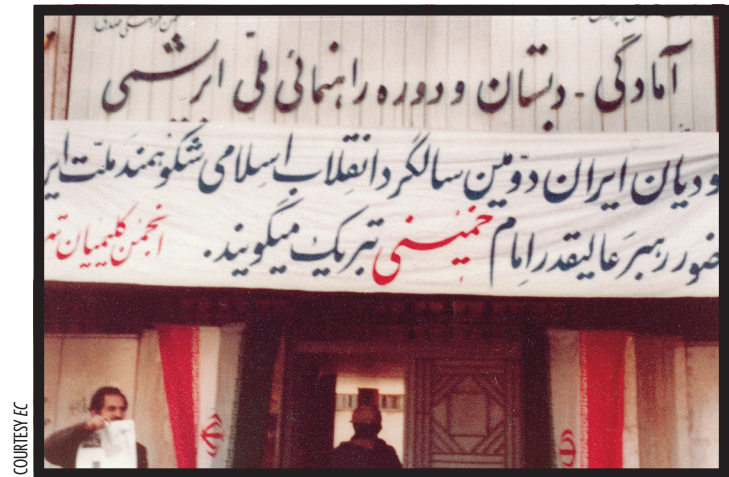 آمادگی - دبستان و دوره راهنمائی ملّی ابریشمی
ودیان ایران دوّمین سالگرد انقلاب اسلامی شکوهمند ملت ایر
ضور رهبر عالیقدر امام خمینی تبریک میگویند. انجمن کلیمیان ته
COURTESY EC